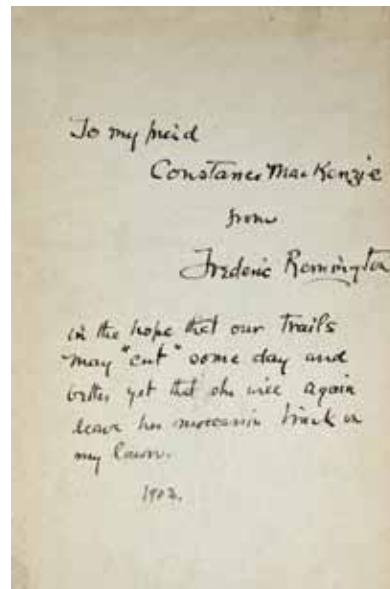 To my freid
Constance MacKenzie
from
Frederic Remington
in the hope that our trails
may "cut" some day and
better yet that she will again
leave her moccasin track on
my lawn.
1902.